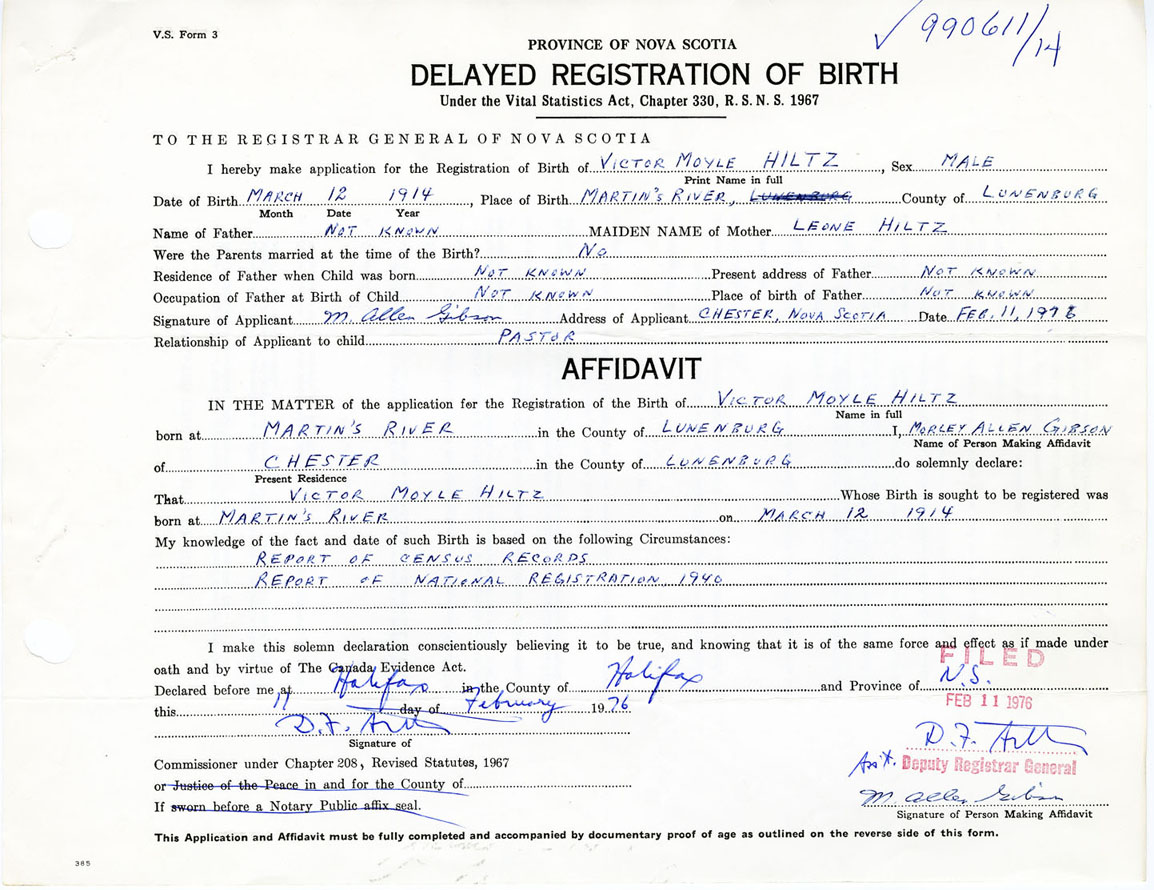 V.S. Form 3
✓ 990611/14
PROVINCE OF NOVA SCOTIA
DELAYED REGISTRATION OF BIRTH
Under the Vital Statistics Act, Chapter 330, R.S.N.S. 1967
TO THE REGISTRAR GENERAL OF NOVA SCOTIA
I hereby make application for the Registration of Birth of VICTOR MOYLE HILTZ, Sex MALE
Print Name in full
Date of Birth MARCH 12 1914, Place of Birth MARTIN'S RIVER, LUNENBURG County of LUNENBURG
Month Date Year
Name of Father NOT KNOWN MAIDEN NAME of Mother LEONE HILTZ
Were the Parents married at the time of the Birth? No
Residence of Father when Child was born NOT KNOWN Present address of Father NOT KNOWN
Occupation of Father at Birth of Child NOT KNOWN Place of birth of Father NOT KNOWN
Signature of Applicant M. Allen Gibson Address of Applicant CHESTER, NOVA SCOTIA Date FEB. 11, 1976
Relationship of Applicant to child PASTOR
AFFIDAVIT
IN THE MATTER of the application for the Registration of the Birth of VICTOR MOYLE HILTZ
Name in full
born at MARTIN'S RIVER in the County of LUNENBURG I, MORLEY ALLEN GIBSON
Name of Person Making Affidavit
of CHESTER in the County of LUNENBURG do solemnly declare:
Present Residence
That VICTOR MOYLE HILTZ Whose Birth is sought to be registered was
born at MARTIN'S RIVER on MARCH 12 1914
My knowledge of the fact and date of such Birth is based on the following Circumstances:
REPORT OF CENSUS RECORDS
REPORT OF NATIONAL REGISTRATION 1940
I make this solemn declaration conscientiously believing it to be true, and knowing that it is of the same force and effect as if made under
oath and by virtue of The Canada Evidence Act.
FILED
Declared before me at Halifax in the County of Halifax and Province of N.S.
this 11 day of February 1976
FEB 11 1976
D.F.
Signature of
D.F.
Commissioner under Chapter 208, Revised Statutes, 1967
Ass't. Deputy Registrar General
or Justice of the Peace in and for the County of
M. Allen Gibson
If sworn before a Notary Public affix seal.
Signature of Person Making Affidavit
This Application and Affidavit must be fully completed and accompanied by documentary proof of age as outlined on the reverse side of this form.
385